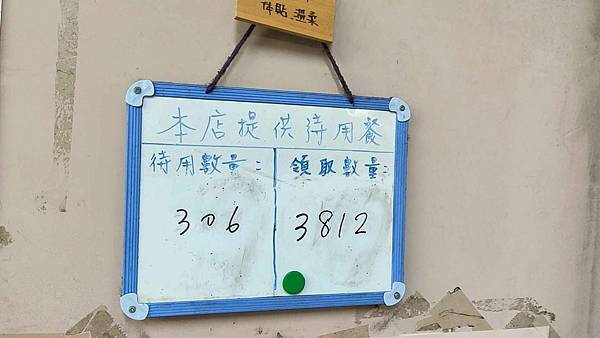 体貼_溫柔
本店提供待用餐
待用數量:
領取數量:
306
3812